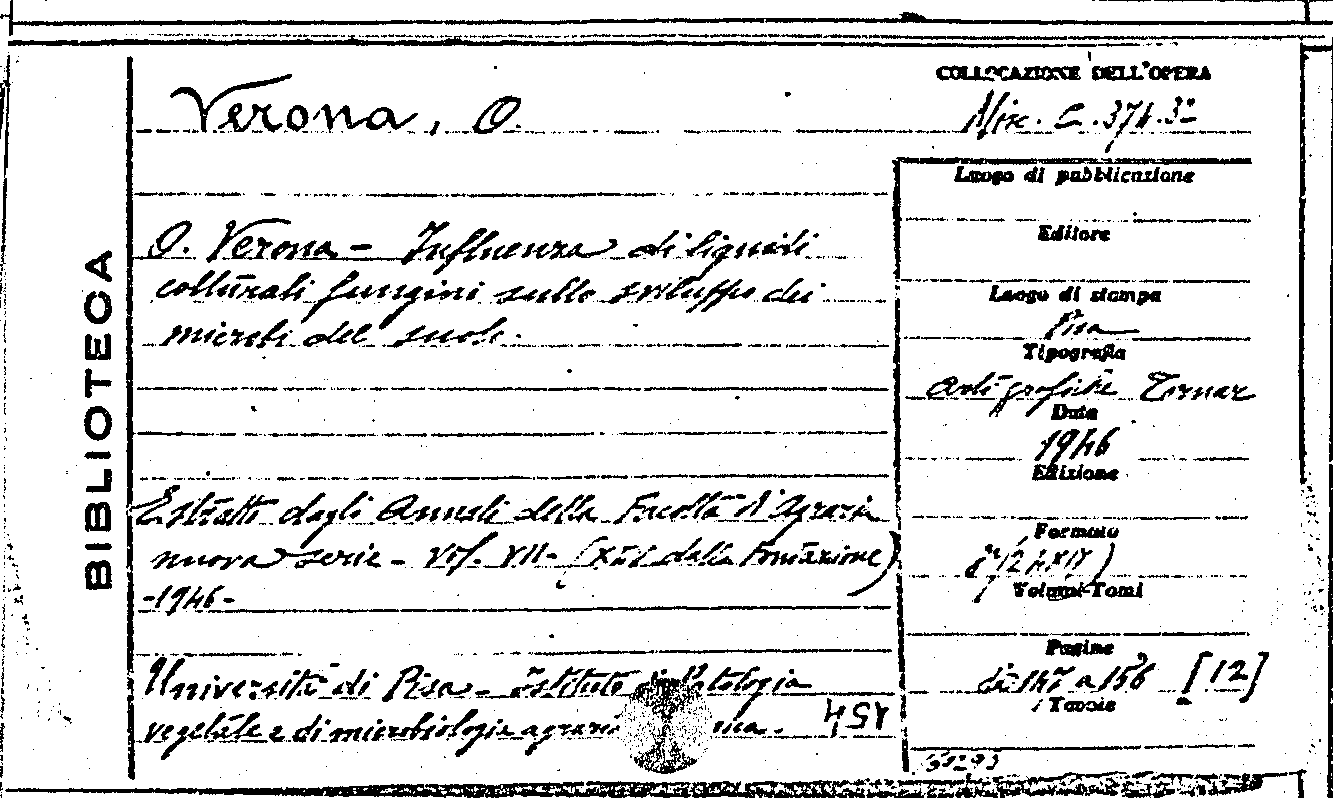 BIBLIOTECA
COLLOCAZIONE DELL'OPERA
Verona, O.
Misc. C. 374.3
O. Verona - Influenza di liquidi
colturali fungini sullo sviluppo dei
microbi del suolo.
Estratto dagli Annali della Facoltà d'Agraria
nuova serie - Vol. VII - dalla Fondazione)
-1946-
Università di Pisa - Istituto di Patologia
vegetale e di microbiologia agraria
Luogo di pubblicazione
Editore
Luogo di stampa
Pisa
Tipografia
Arti grafiche Tornar
Data
1946
Edizione
Formato
Volumi-Tomi
Pagine
di 147 a 156 [12]
Tavole